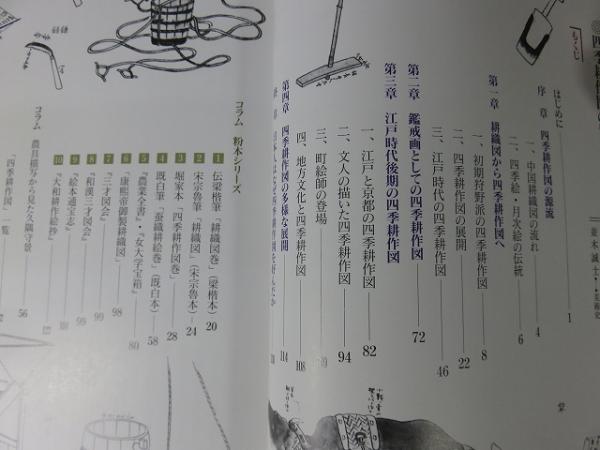 四季耕作図の
もくじ
並木誠士・美術史
はじめに 1
序章 四季耕作図の源流
一、中国耕織図の流れ 4
二、四季絵・月次絵の伝統 6
第一章 耕織図から四季耕作図へ
一、初期狩野派の四季耕作図 8
二、四季耕作図の展開 22
三、江戸時代の四季耕作図 46
第二章 鑑戒画としての四季耕作図 72
第三章 江戸時代後期の四季耕作図
一、江戸と京都の四季耕作図 82
二、文人の描いた四季耕作図 94
三、町絵師の登場
四、地方文化と四季耕作図 108
第四章 四季耕作図の多様な展開 114
コラム 粉本シリーズ
1 伝梁楷筆「耕織図巻」（梁楷本） 20
2 宋宗魯筆「耕織図」（宋宗魯本） 24
3 堀家本「四季耕作図巻」 28
4 既白筆「蚕織耕絵巻」（既白本） 58
5 『農業全書』・『女大学宝箱』 80
6 『康熙帝御製耕織図』 98
7 『三才図会』 99
8 『和漢三才図会』
9 『絵本通宝志』
10 『大和耕作絵抄』
コラム
農具模写から見た久隅守景 56
「四季耕作図」一覧